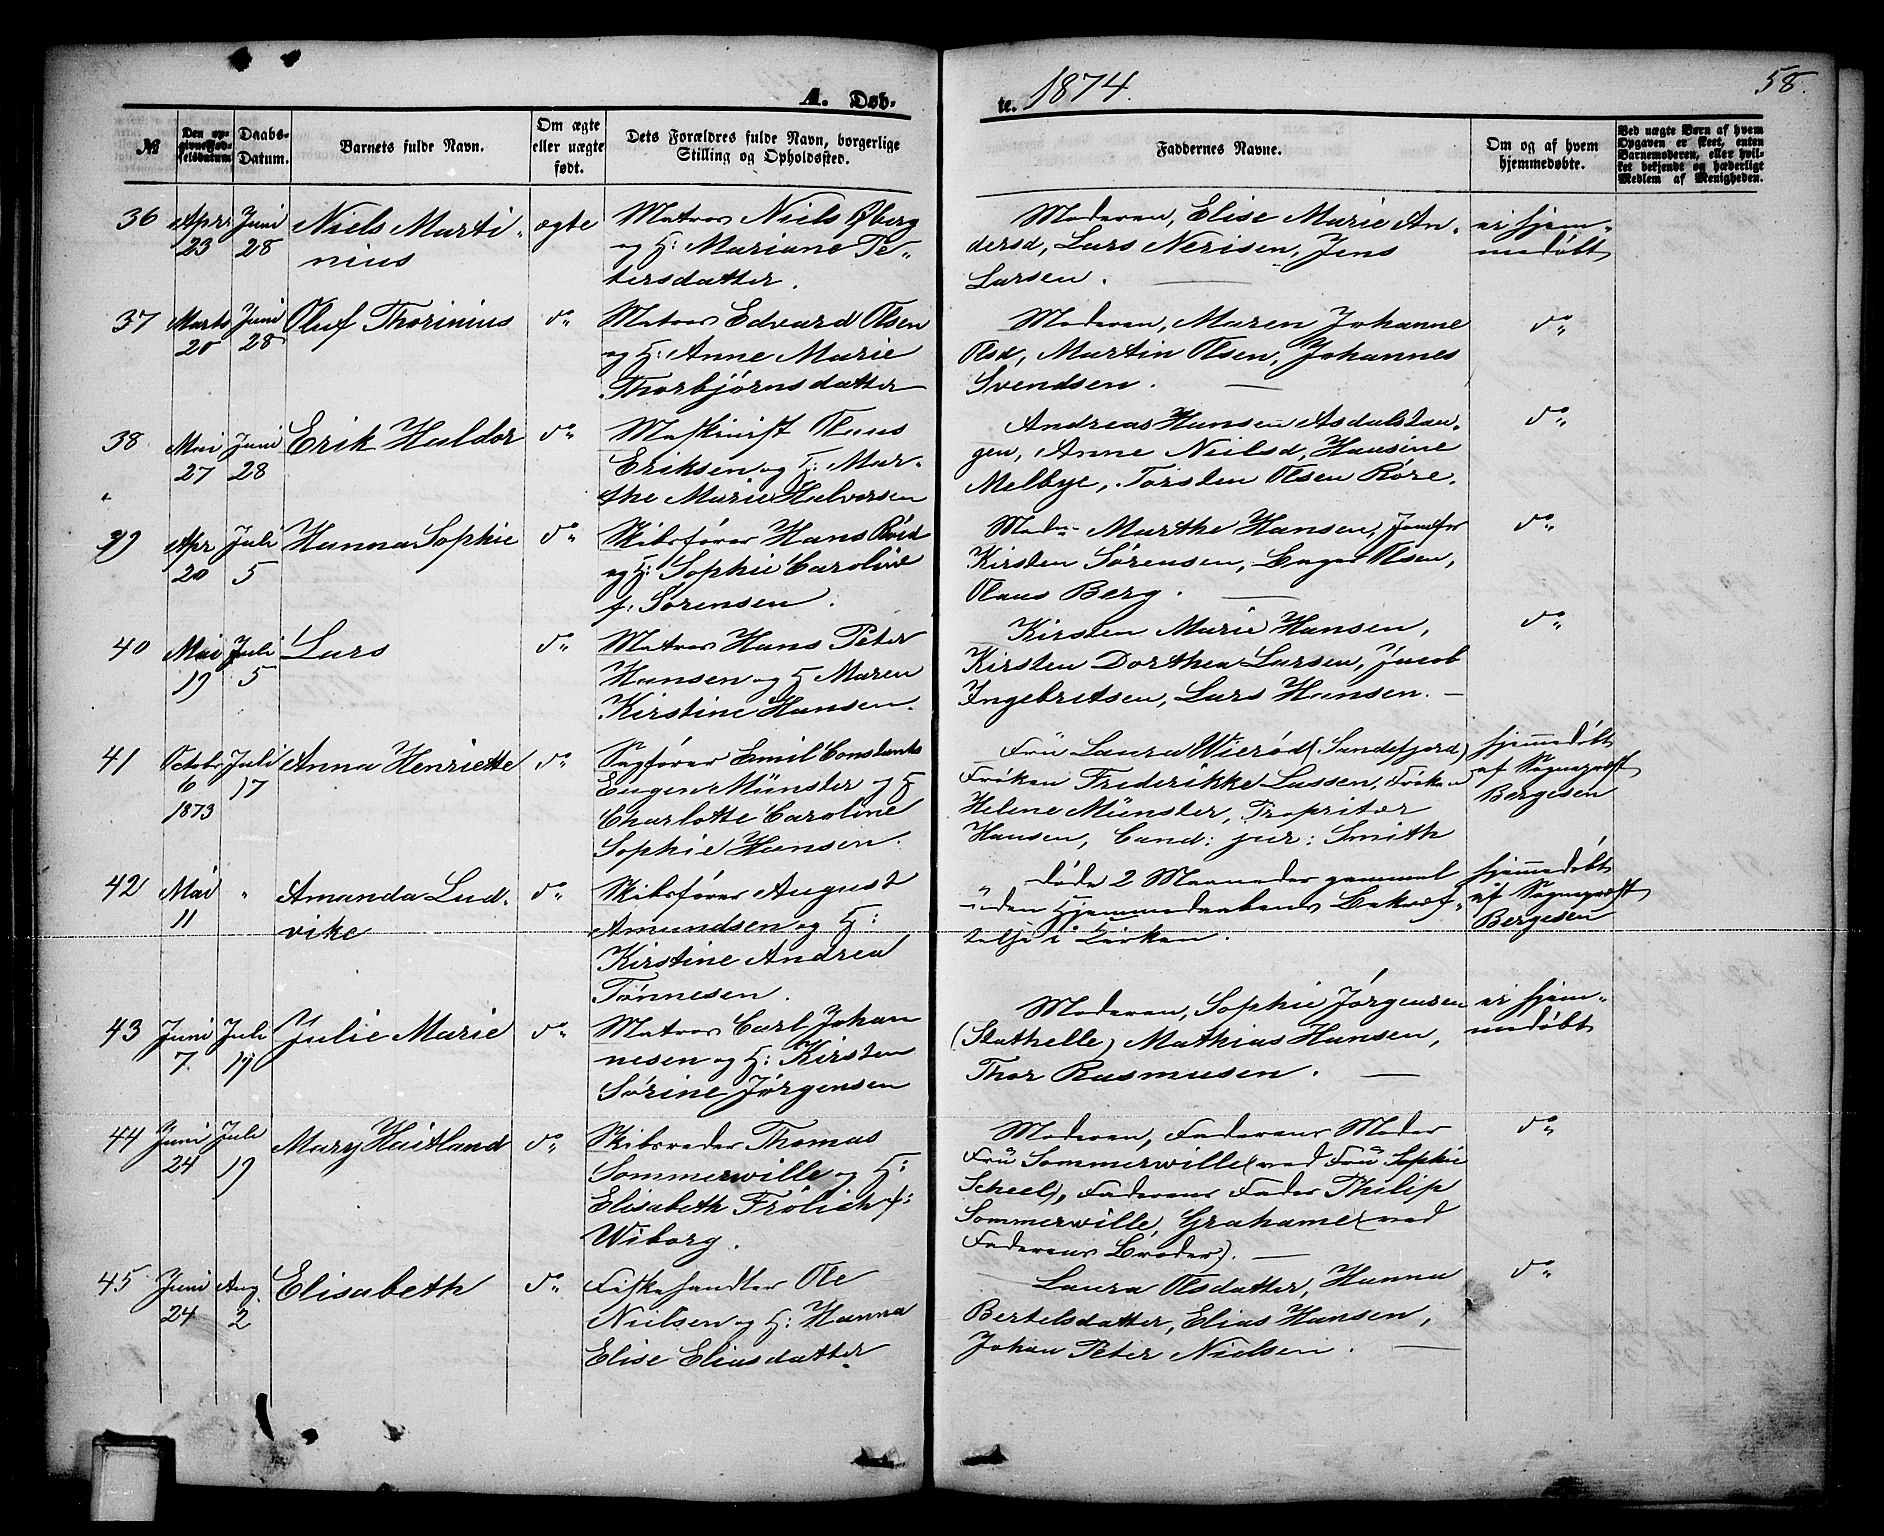 A. Døb-
te. 1874.
58.
№
Den op-
givne Fød-
selsdatum.
Daabs-
Datum.
Barnets fulde Navn.
Om ægte
eller uægte
født.
Dets Forældres fulde Navn, borgerlige
Stilling og Opholdssted.
Faddernes Navne.
Om og af hvem
hjemmedøbte.
Ved uægte Børn af hvem
Opgaven er skeet, enten
Barnemoderen, eller hvil-
ket bekjendt og hæderligt
Medlem af Menigheden.
36
Apr.
23
Juni
28
Niels Marti-
nius
ægte
Matros Niels Øberg
og H: Mariane Pe-
tersdatter.
Moderen, Elise Marie An-
dersd, Lars Nerisen, Jens
Larsen.
ei hjem-
medøbt
37
Marts
20
Juni
28
Oluf Thorinius
do
Matros Edvard Olsen
og H: Anne Marie
Thorbjørnsdatter
Moderen, Maren Johanne
Olsd, Martin Olsen, Johannes
Svendsen.
do
38
Mai
27
Juni
28
Erik Haldor
do
Maskinist Olaus
Eriksen og H: Mar-
the Marie Halvorsen
Andreas Hansen Asdalstan-
gen, Anne Neilsd, Hansine
Melbye, Torsten Olsen Røre.
do
39
Apr
20
Juli
5
Hanna Sophie
do
Skibsfører Hans
og H: Sophie Caroline
f. Sørensen.
Mod: Marthe Hansen, Jomfr
Kirsten Sørensen, Olsen,
Olaus Berg.
do
40
Mai
19
Juli
5
Lars
do
Matros Hans Peter
Hansen og H Maren
Kirstine Hansen.
Kirsten Marie Hansen,
Kirsten Dorthea Larsen, Jacob
Ingebritsen, Lars Hansen.
do
41
Octobr
6
1873
Juli
17
Anna Henriette
do
Sagfører Emil Constants
Eugen Münster og H
Charlotte Caroline
Sophie Hansen.
Frü Laura Wierød (Sandefjord)
Frøken Frederikke Lassen, Frøken
Helene Münster, Propritær
Hansen, Cand: jur: Smith
hjemmedøbt
af Sognepræst
Bergesen
42
Mai
11
"
Amanda Lud-
vike
do
Skibsfører August
Amundsen og H:
Kirstine Andrea
Tønnesen.
døde 2 Maaneder gammel
uden Hjemmedaabens Bekræf-
telse i Kirken.
hjemmedøbt
af Sognepræst
Bergesen
43
Juni
7
Juli
19
Julie Marie
do
Matros Carl Johan
nesen og H: Kirsten
Sørine Jørgensen
Moderen, Sophie Jørgensen
(Stathelle) Mathias Hansen,
Thor Rasmusen.
ei hjem-
medøbt
44
Juni
24
Juli
19
Mary Haitland
do
Skibsreder Thomas
Sommerwille og H:
Elisabeth Frölich f:
Wiborg.
Moderen, Faderens Moder
Frü Sommerwille (ved Frü Sophie
Scheel), Faderens Fader Philip
Sommerwille, Grahame (ved
Faderens Broder).
do
45
Juni
24
Aug.
2
Elisabeth
do
Fiskehandler Ole
Nielsen og H: Hanna
Elise Eliasdatter
Laura Olsdatter, Hanna
Bertelsdatter, Elias Hansen,
Johan Peter Nielsen.
do